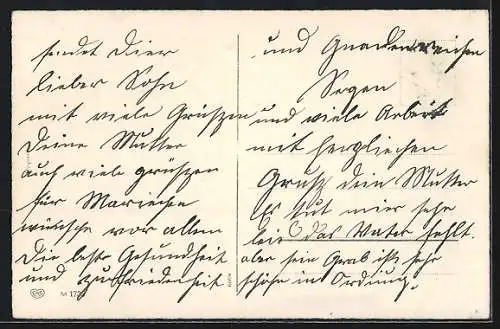 sendet Dier
lieber Sohn
mit viele Grüßen
Deine Mutter
auch viele grüßen
für Mariechen
wünsche vor allem
Die beste Gesundheit
und zufriedenheit
und Gnadenreichen
Segen
und viele Arbeit
mit herzliechen
Gruß dein Mutter
Es tut mier sehr
leid das Vater fehlt.
aber sein Grab ist sehr
schön in Ordnung.